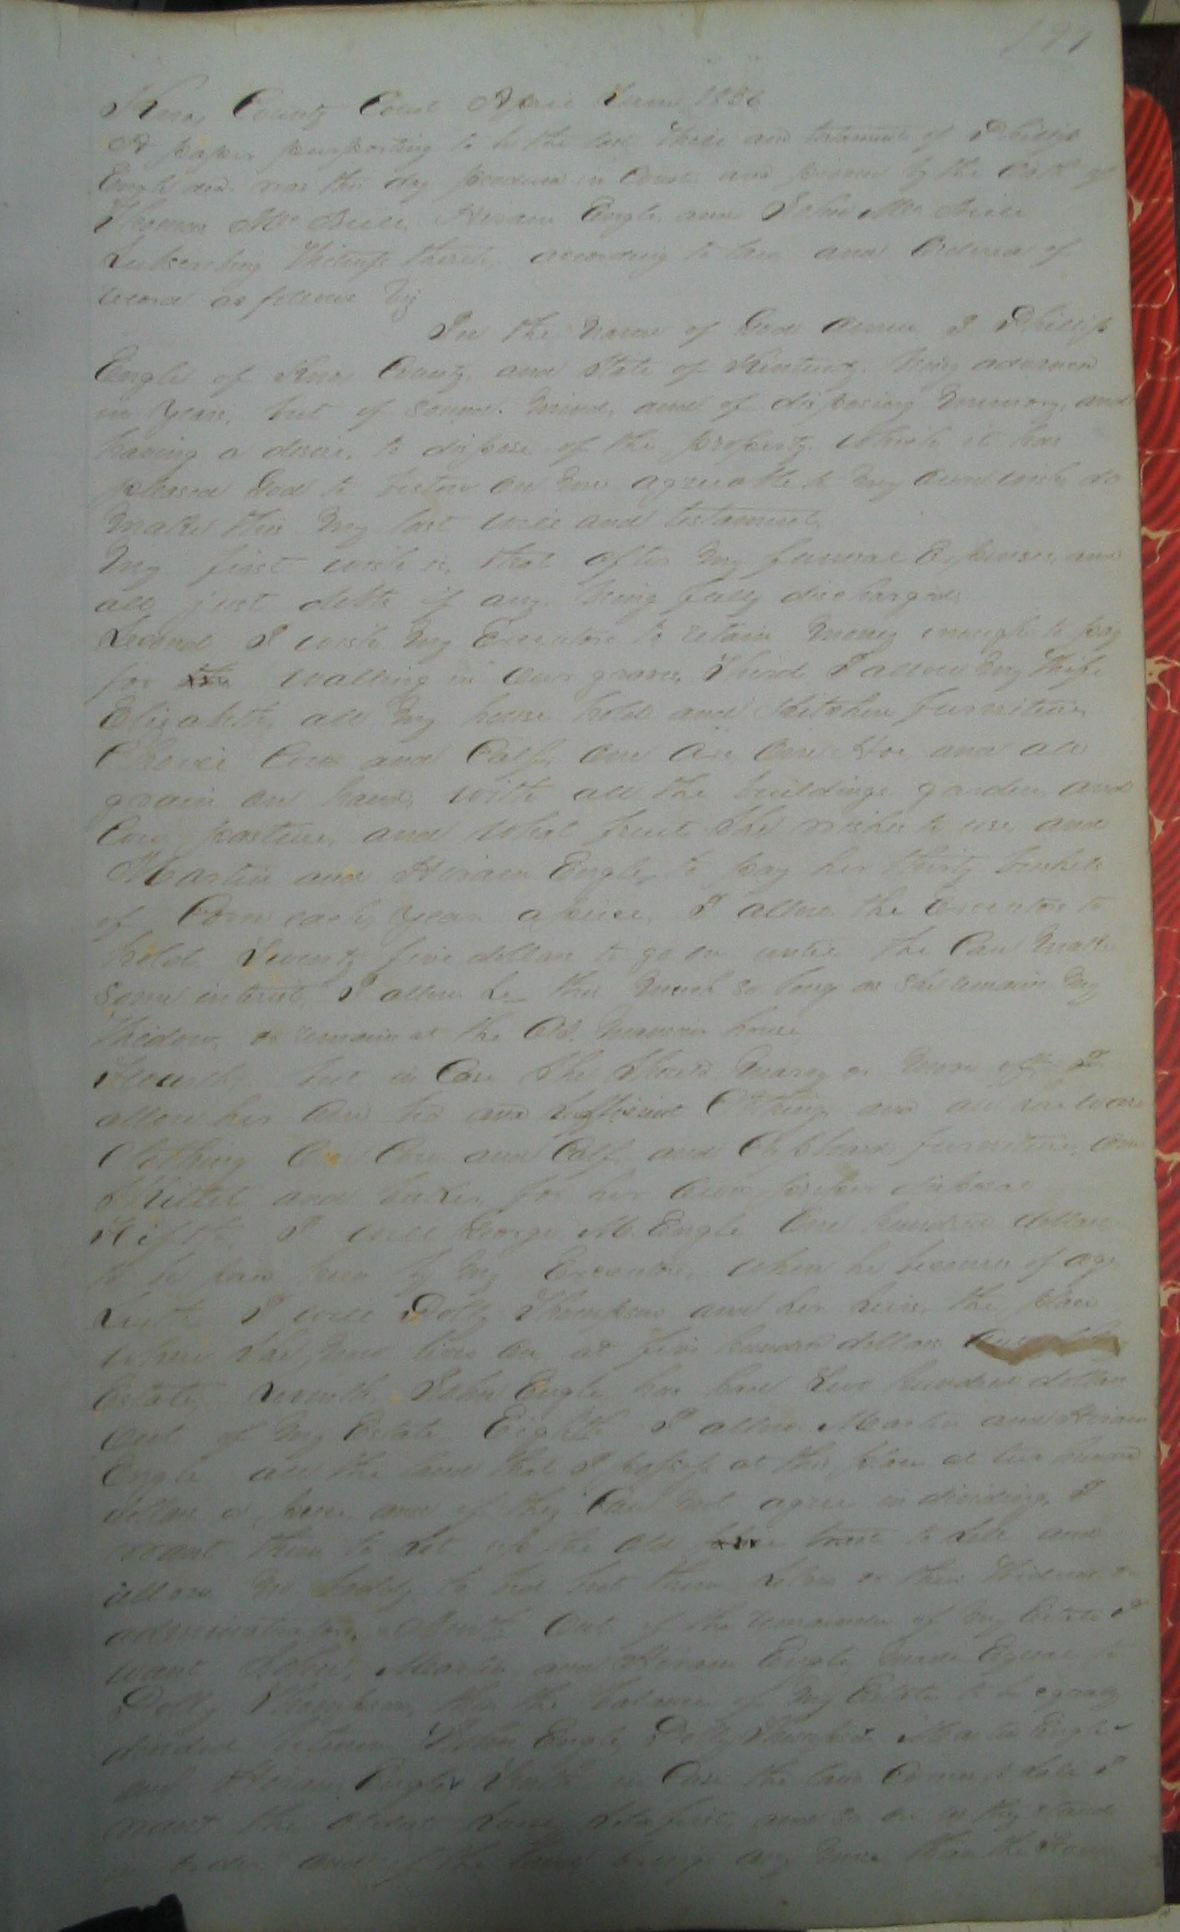 Knox County Court April Term 1856
A paper purporting to be the last Will and testament of Phillip
Engle decd. was this day produced in Court and proven by the Oath of
Thomas Hiram Engle, and John
Subscribing Witness thereto, according to law and Ordered of
record as follows Viz
In the Name of God Amen I Phillip
Engle of Knox County, and State of Kentucky. being advanced
in Years, but of sound Mind, and of disposing Memory, and
having a desire, to dispose of the property which it has
pleased God to bestow on me agreeable to my own wish do
make this my last will and testament.
My first wish is, that after my funeral Expenses, and
all just debts if any being fully discharged.
Second I wish my Executors to retain money enough to pay
for walling in our graves, Third I allow my Wife
Elizabeth, all my house hold and Kitchen furniture
Choice Cow and Calf, one Ax one Hoe and all
grain on hand, with all the buildings garden, and
Cow pasture, and what fruit she wishes to use, and
Martin and Hiram Engle, to pay her thirty bushels
of Corn each Year apiece, I allow the Executors to
hold Seventy five dollars to go on untill the Can make
some interest, I allow her this much so long as she remains my
Widow, or remains at the Old Mansion house
Fourth, but in Case She Should marry or move off I
allow her one bed and sufficient Clothing and all her ware
Clothing One Cow and Calf, and Cupboard furniture, one
Skillet and for her own dispose
Fifth, I will George M. Engle One hundred dollars
to be paid him by my Executors, when he becomes of age
I will Dolly Thompson and her heirs, the place
where she now lives on, at five hundred dollars
Estate, Seventh, John Engle has had two hundred dollars
out of my Estate Eighth I allow Martin and Hiram
Engle all the land that I possess at this place at hundred
dollars a piece, and if they Can not agree in dividing, I
want them to set up the old to sell and
allow no body to bid but them selves or their Widows or
administrators. Ninth out of the remainder of my Estate I
want John, Martin and Hiram Engle made Equal to
Dolly Thompson, then the balance of my Estate to be equally
divided between John Engle, Dolly Thompson Martin Engle
and Hiram Engle, Tenth in Case the land Comes to Sale I
want the and so on as they stand
in order, and if the land brings any more than the